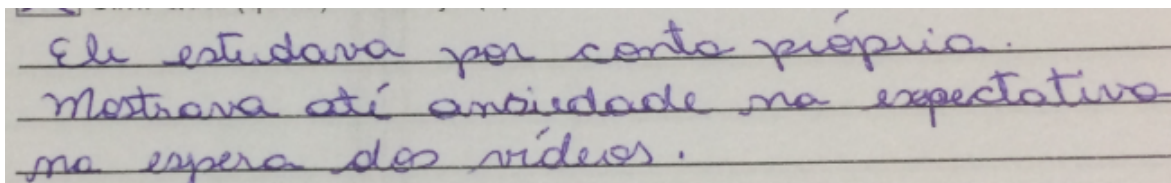 Ele estudava por conta própria.
Mostrava até ansiedade na expectativa
na espera dos vídeos.